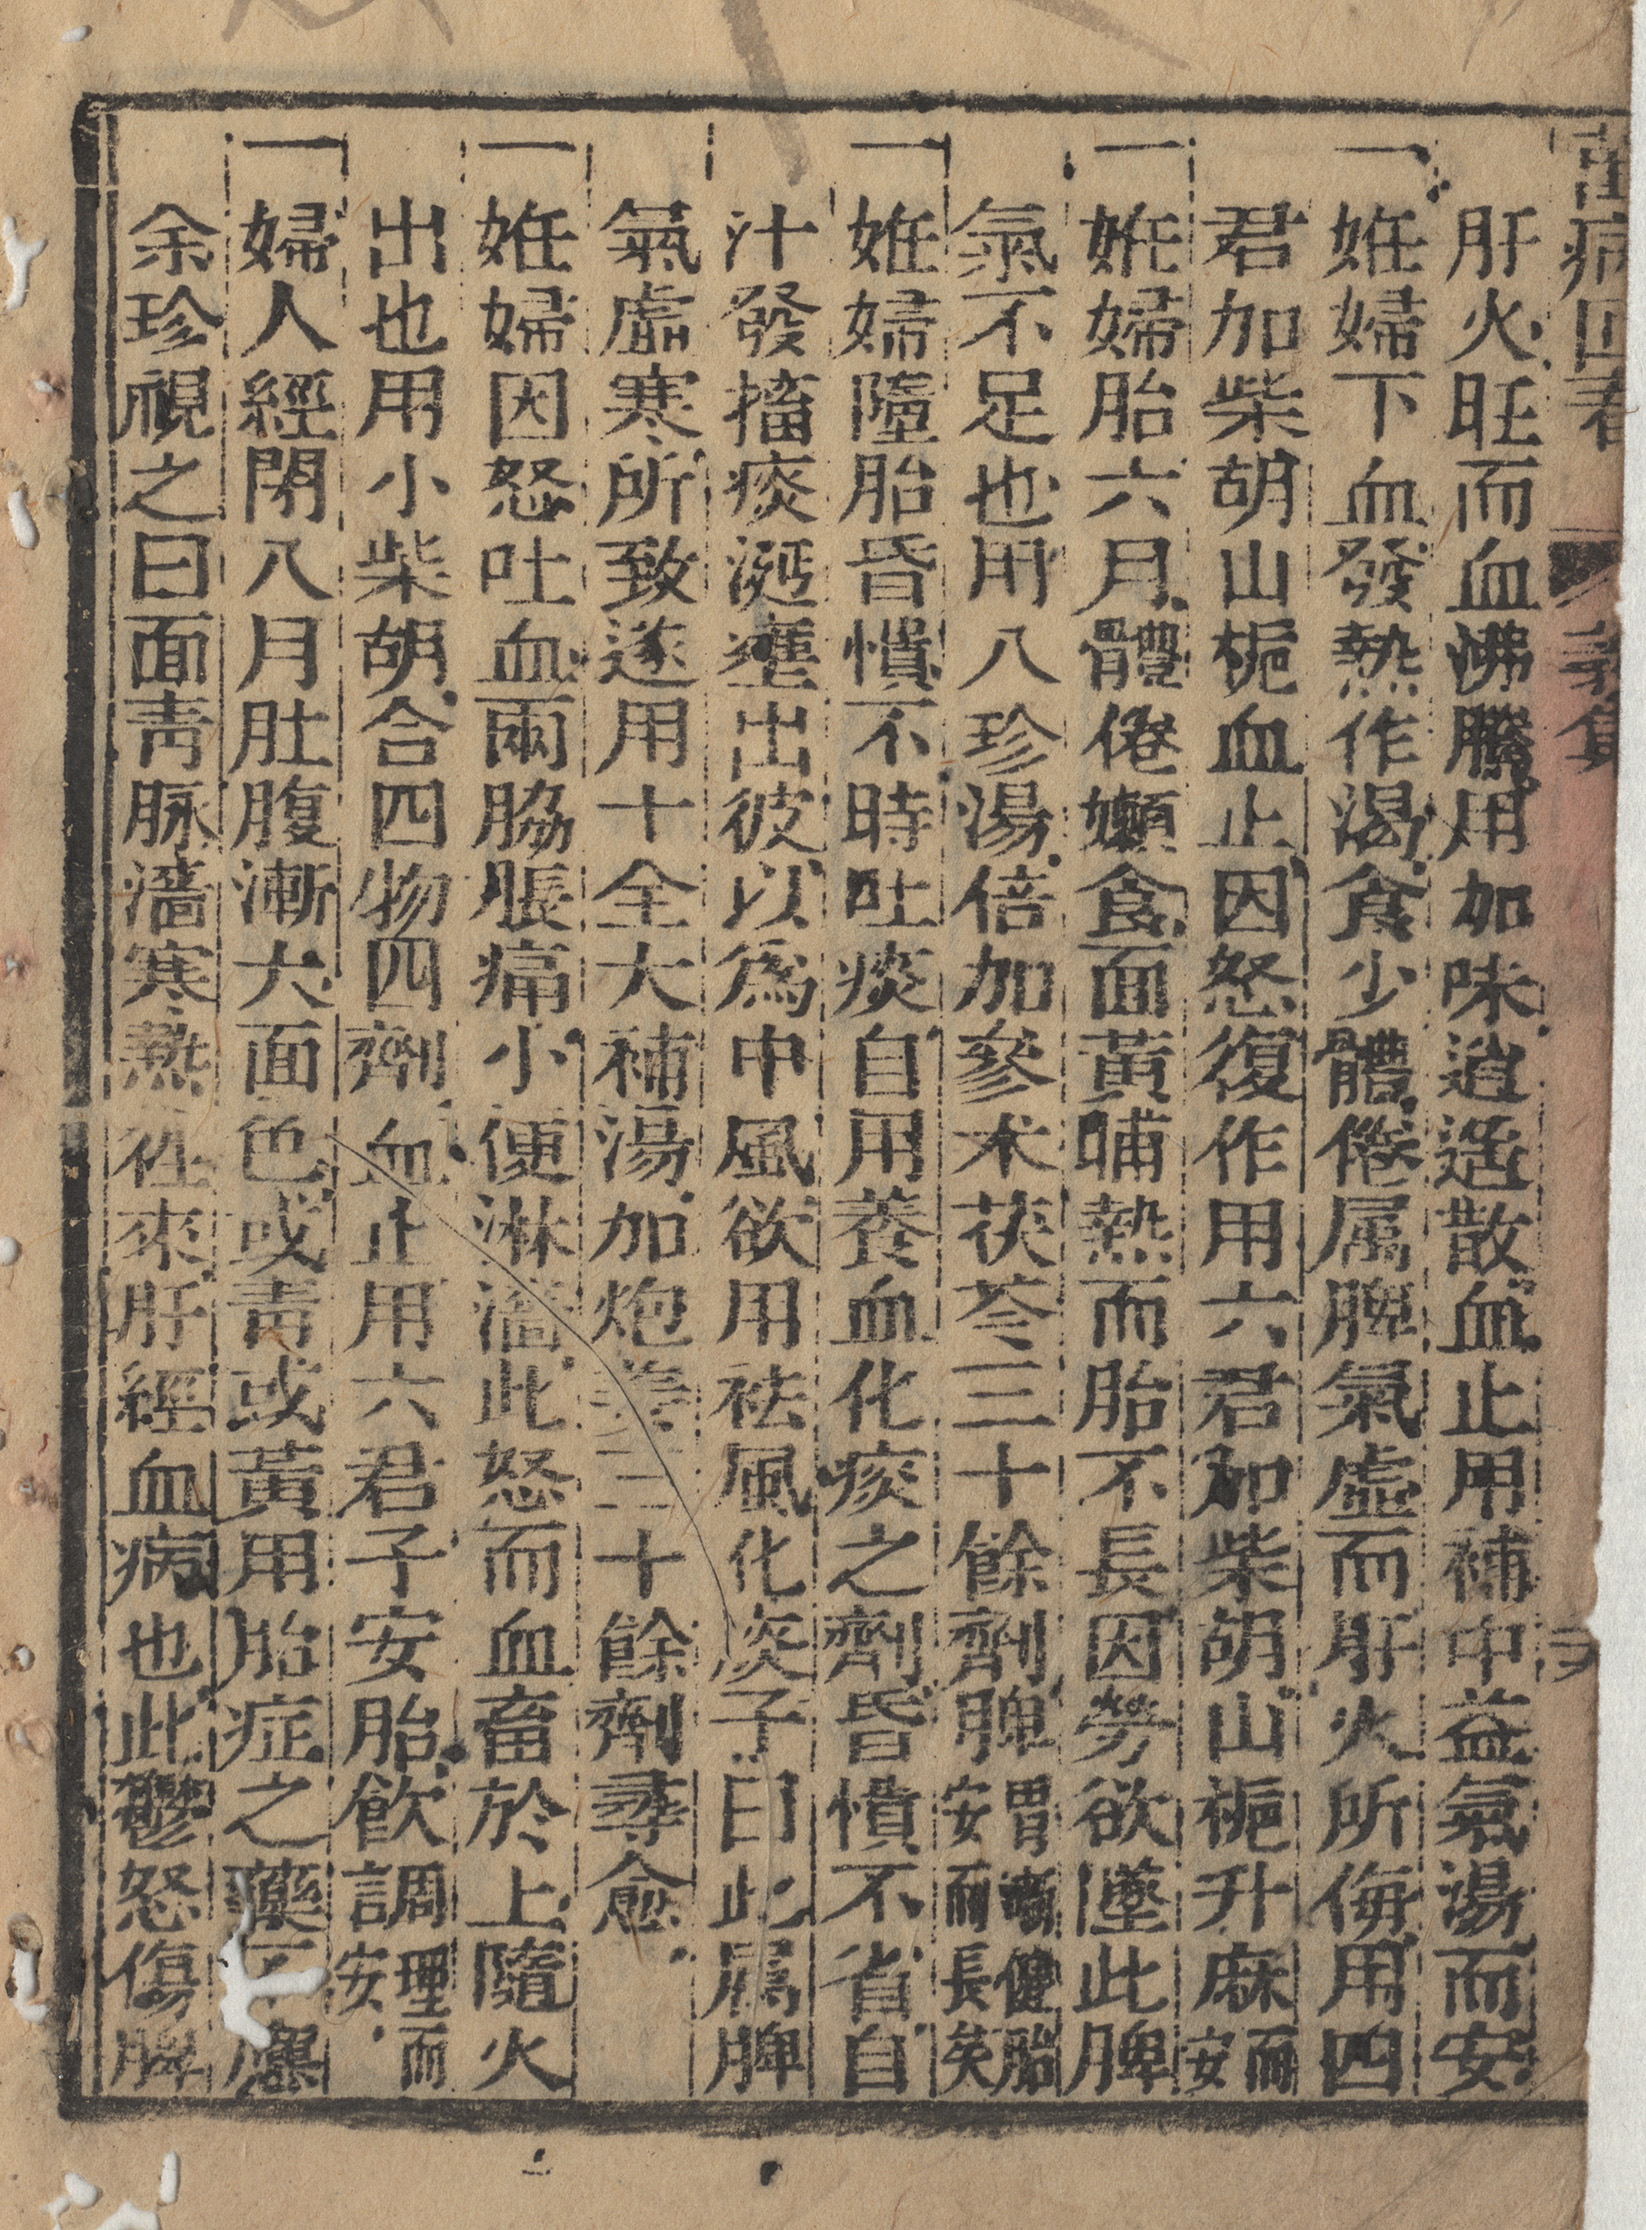 萬病回春 義集
肝火旺而血沸騰用加味逍遥散血止用補中益氣湯而安
一妊婦下血發熱作渴食少體倦属脾氣虛而肝火所侮用四
君加柴胡山梔血止因怒復作用六君加柴胡山梔升麻而安
一妊婦胎六月體倦嬾食面黃晡熱而胎不長因勞欲墜此脾
氣不足也用八珍湯倍加參术茯苓三十餘劑脾胃漸健胎安而長矣
一妊婦墮胎昏憒不時吐痰自用養血化痰之劑昏憒不省自
汁發搐痰涎壅出彼以為中風欲用祛風化痰予曰此属脾
氣虛寒所致遂用十全大補湯加炮姜三十餘劑尋愈
一妊婦因怒吐血兩脇脹痛小便淋濇此怒而血畜於上隨火
出也用小柴胡合四物四劑血止用六君子安胎飲調理而安
一婦人經閉八月肚腹漸大面色或青或黃用胎症之藥不應
余珍視之曰面靑脉濇寒熱往來肝經血病也此鬱怒傷脾